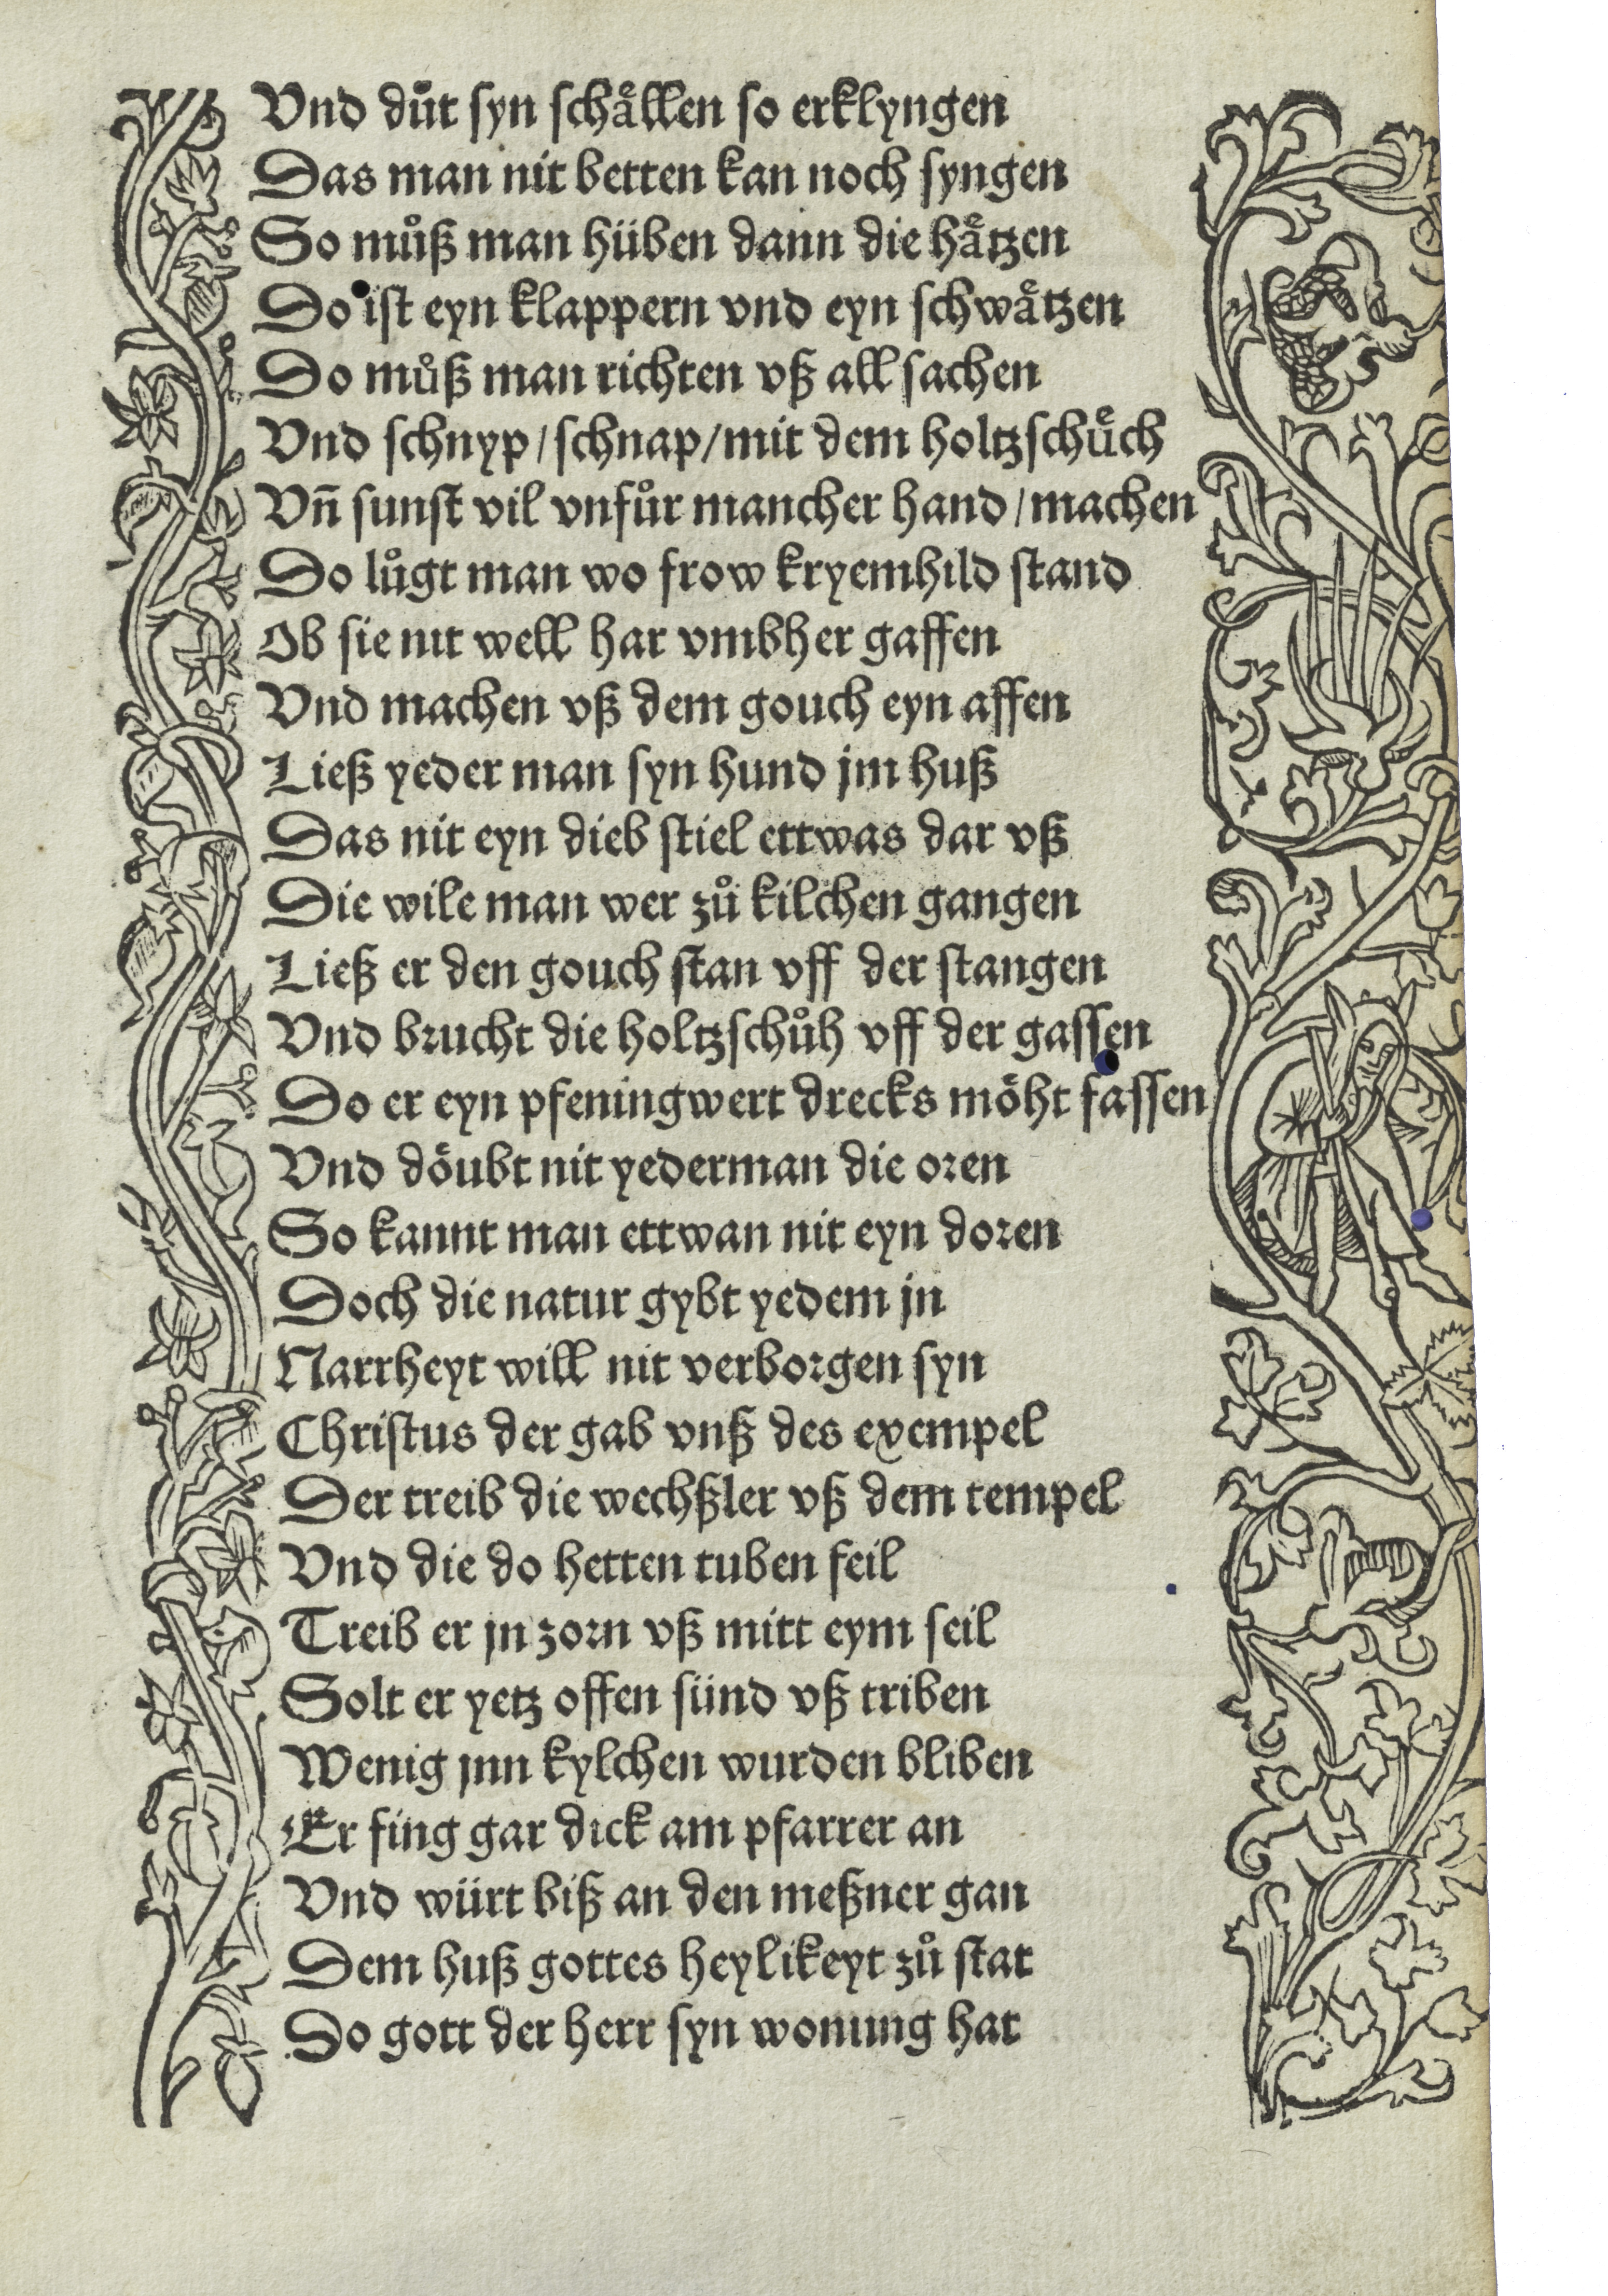 Vnd důt syn schaͤllen so erklyngen
Das man nit betten kan noch syngen
So můß man hüben dann die haͤtzen
Do ist eyn klappern vnd eyn schwaͤtzen
Do můß man richten vß all sachen
Vnd schnyp/schnap/mit dem holtzschuͤch
Vn̄ sunst vil vnfůr mancher hand/machen
Do lůgt man wo frow kryemhild stand
Ob sie nit well har vmbher gaffen
Vnd machen vß dem gouch eyn affen
Ließ yeder man syn hund jm huß
Das nit eyn dieb stiel ettwas dar vß
Die wile man wer zů kilchen gangen
Ließ er den gouch stan vff der stangen
Vnd brucht die holtzschůh vff der gassen
Do er eyn pfeningwert drecks moͤht fassen
Vnd doͤubt nit yederman die oren
So kannt man ettwan nit eyn doren
Doch die natur gybt yedem jn
Narrheyt will nit verborgen syn
Christus der gab vnß des exempel
Der treib die wechßler vß dem tempel
Vnd die do hetten tuben feil
Treib er jn zorn vß mitt eym seil
Solt er yetz offen sünd vß triben
Wenig jnn kylchen wurden bliben
Er fing gar dick am pfarrer an
Vnd würt biß an den meßner gan
Dem huß gottes heylikeyt zů stat
Do gott der herr syn wonung hat